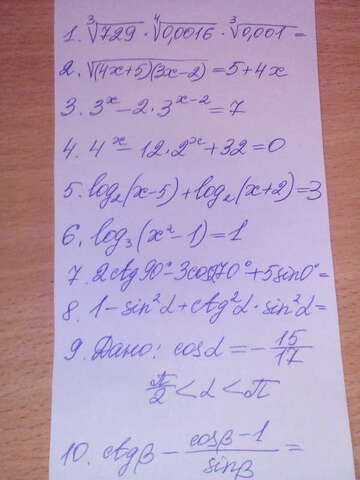 1. ∛729 · ∜0,0016 · ∛0,001 =
2. √(4x+5)(3x-2) = 5+4x
3. 3^x - 2·3^(x-2) = 7
4. 4^x - 12·2^x + 32 = 0
5. log₂(x-5) + log₂(x+2) = 3
6. log₃(x²-1) = 1
7. 2ctg90° - 3cos270° + 5sin0° =
8. 1 - sin²α + ctg²α · sin²α =
9. Дано: cosα = -15/17
π/2 < α < π
10. ctgβ - (cosβ-1)/sinβ =